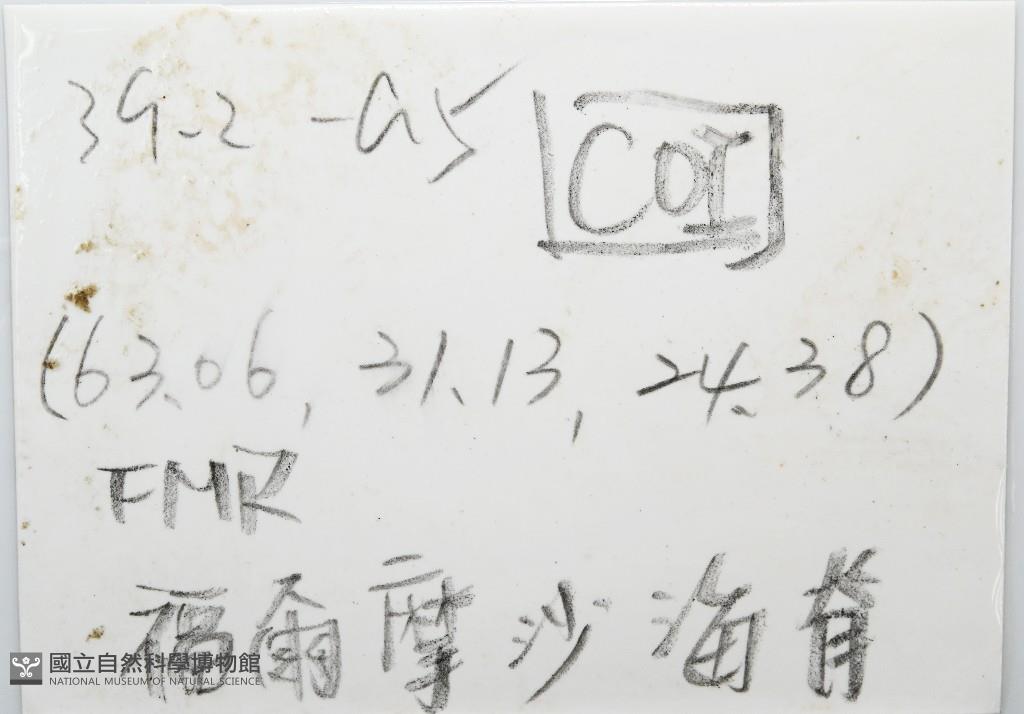 39-2-G5 COI
(63.06, 31.13, 24.38)
FMR
福爾摩沙海脊
國立自然科學博物館
NATIONAL MUSEUM OF NATURAL SCIENCE